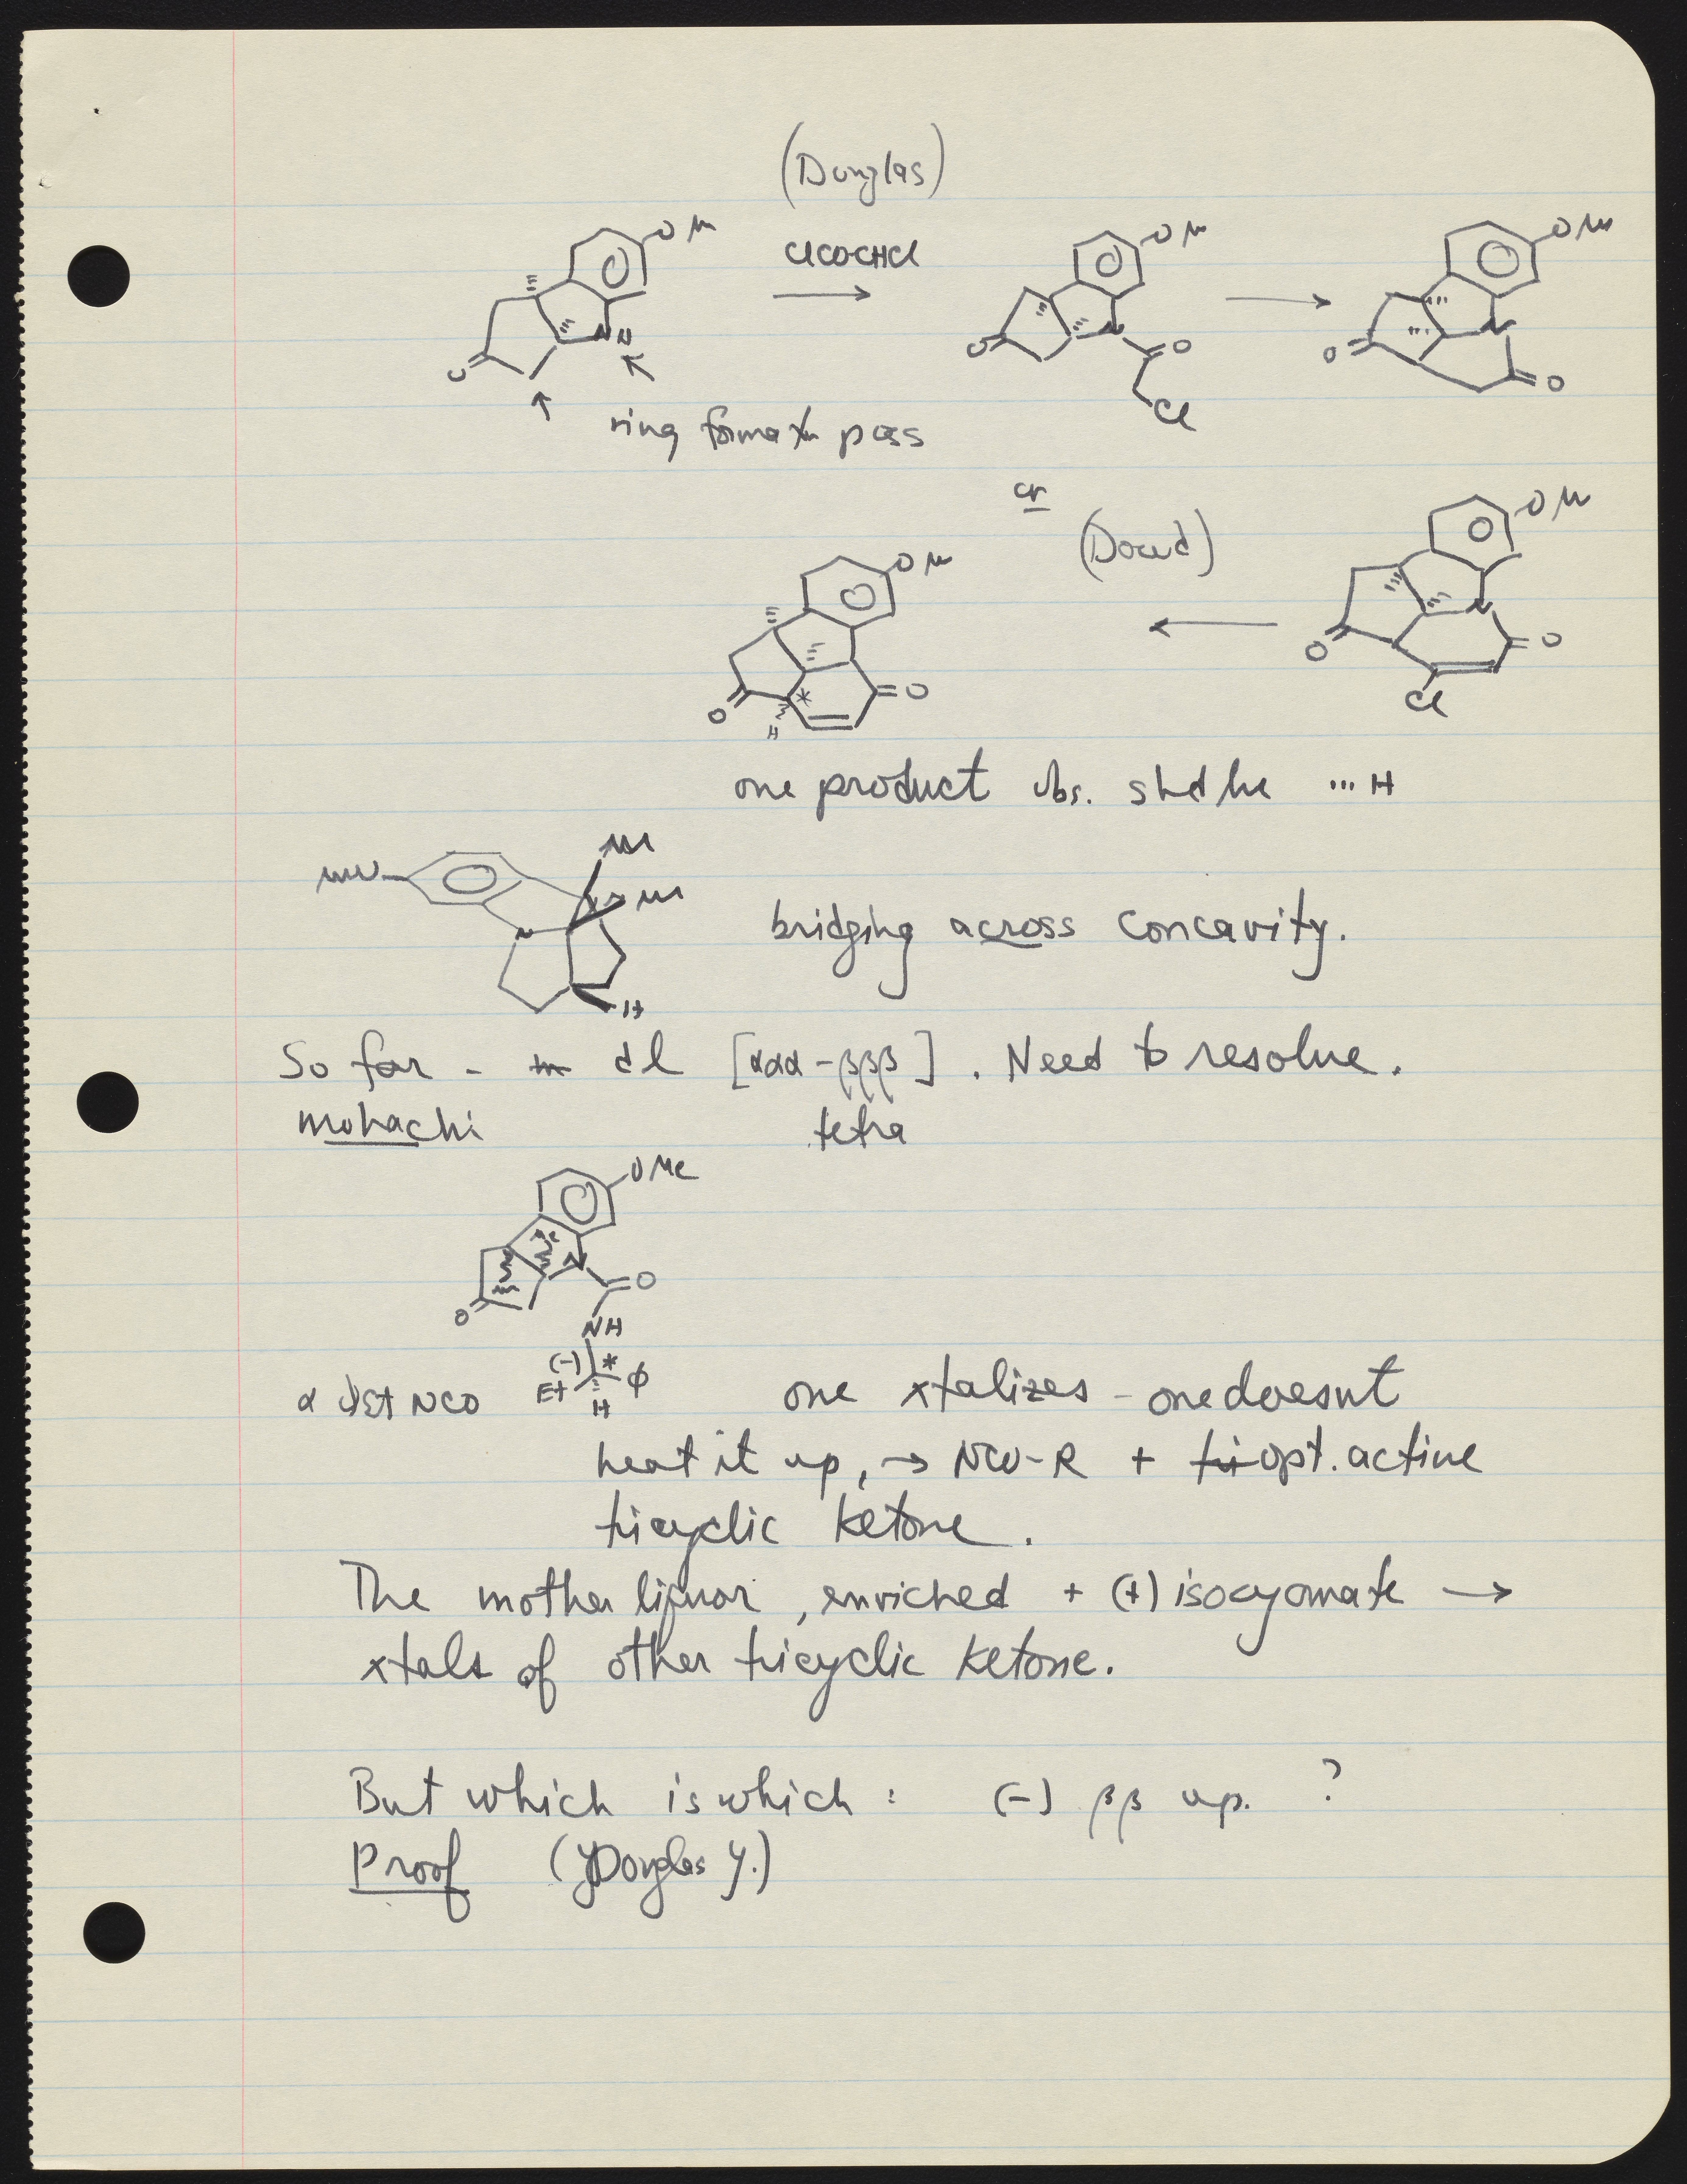 (Douglas)
OM ClCOCHCl OM OM
N N O Cl O O
ring formaxn poss
or
(Dowd)
OM OM
O * O H O O Cl
one product obs. shd be ... H
M
M
N
H
bridging across concavity.
So far - dl [ααα-βββ]. Need to resolve.
mohachi tetra
OMe
N O
O NH
(-) *
NCO Et φ one xtalizes - one doesnt
H
heat it up, → NCO-R + opt. active
tricyclic ketone.
The mother liquor, enriched + (+) isocyanate →
xtals of other tricyclic ketone.
But which is which: (-) ββ up. ?
Proof (Douglas Y.)